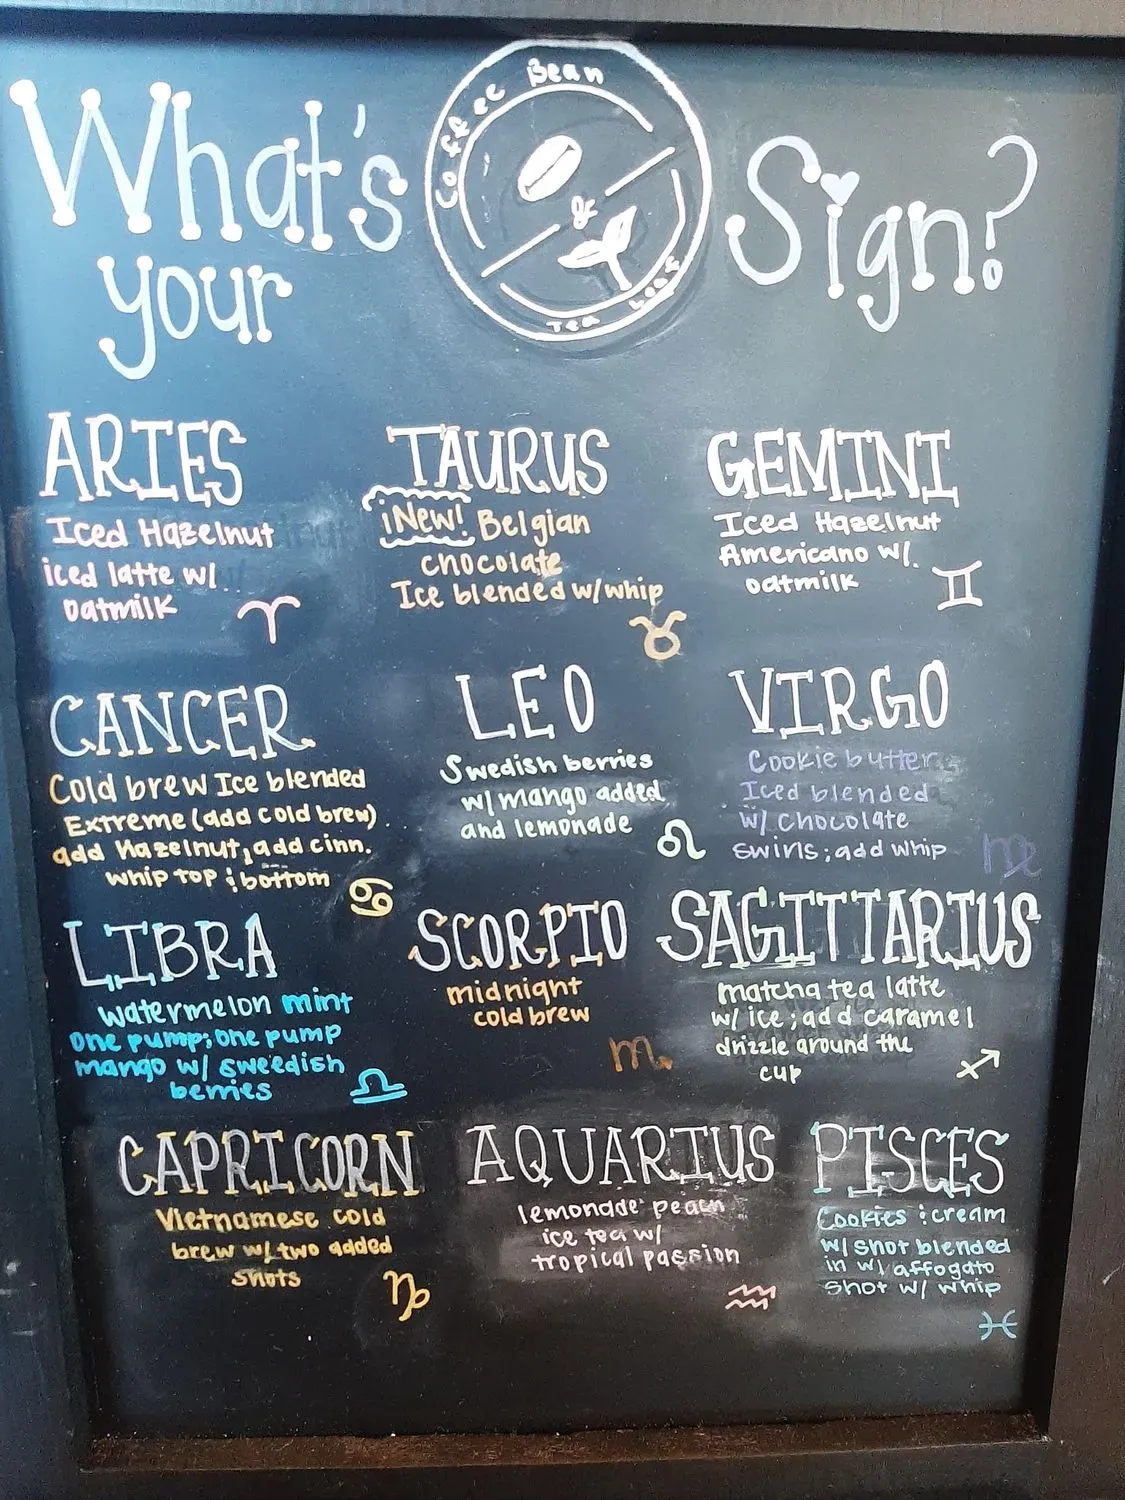 What's
your
Coffee Bean
&
Tea Leaf
Sign?
ARIES
Iced Hazelnut
iced latte w/
oatmilk
TAURUS
¡New! Belgian
chocolate
Ice blended w/whip
GEMINI
Iced Hazelnut
Americano w/
oatmilk
CANCER
Cold brew Ice blended
Extreme (add cold brew)
add Hazelnut, add cinn.
whip top & bottom
LEO
Swedish berries
w/ mango added
and lemonade
VIRGO
Cookie butter
Iced blended
w/ chocolate
swirls; add whip
LIBRA
watermelon mint
one pump; one pump
mango w/ sweedish
berries
SCORPIO
midnight
cold brew
SAGITTARIUS
matcha tea latte
w/ ice; add caramel
drizzle around the
cup
CAPRICORN
Vietnamese cold
brew w/ two added
shots
AQUARIUS
lemonade peach
ice tea w/
tropical passion
PISCES
Cookies & cream
w/ shot blended
in w/ affogato
shot w/ whip